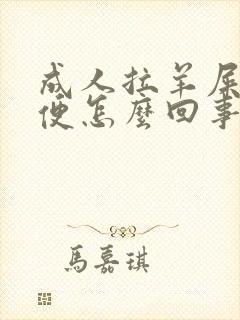 成人拉羊屎
便怎麼回事
馬嘉琪